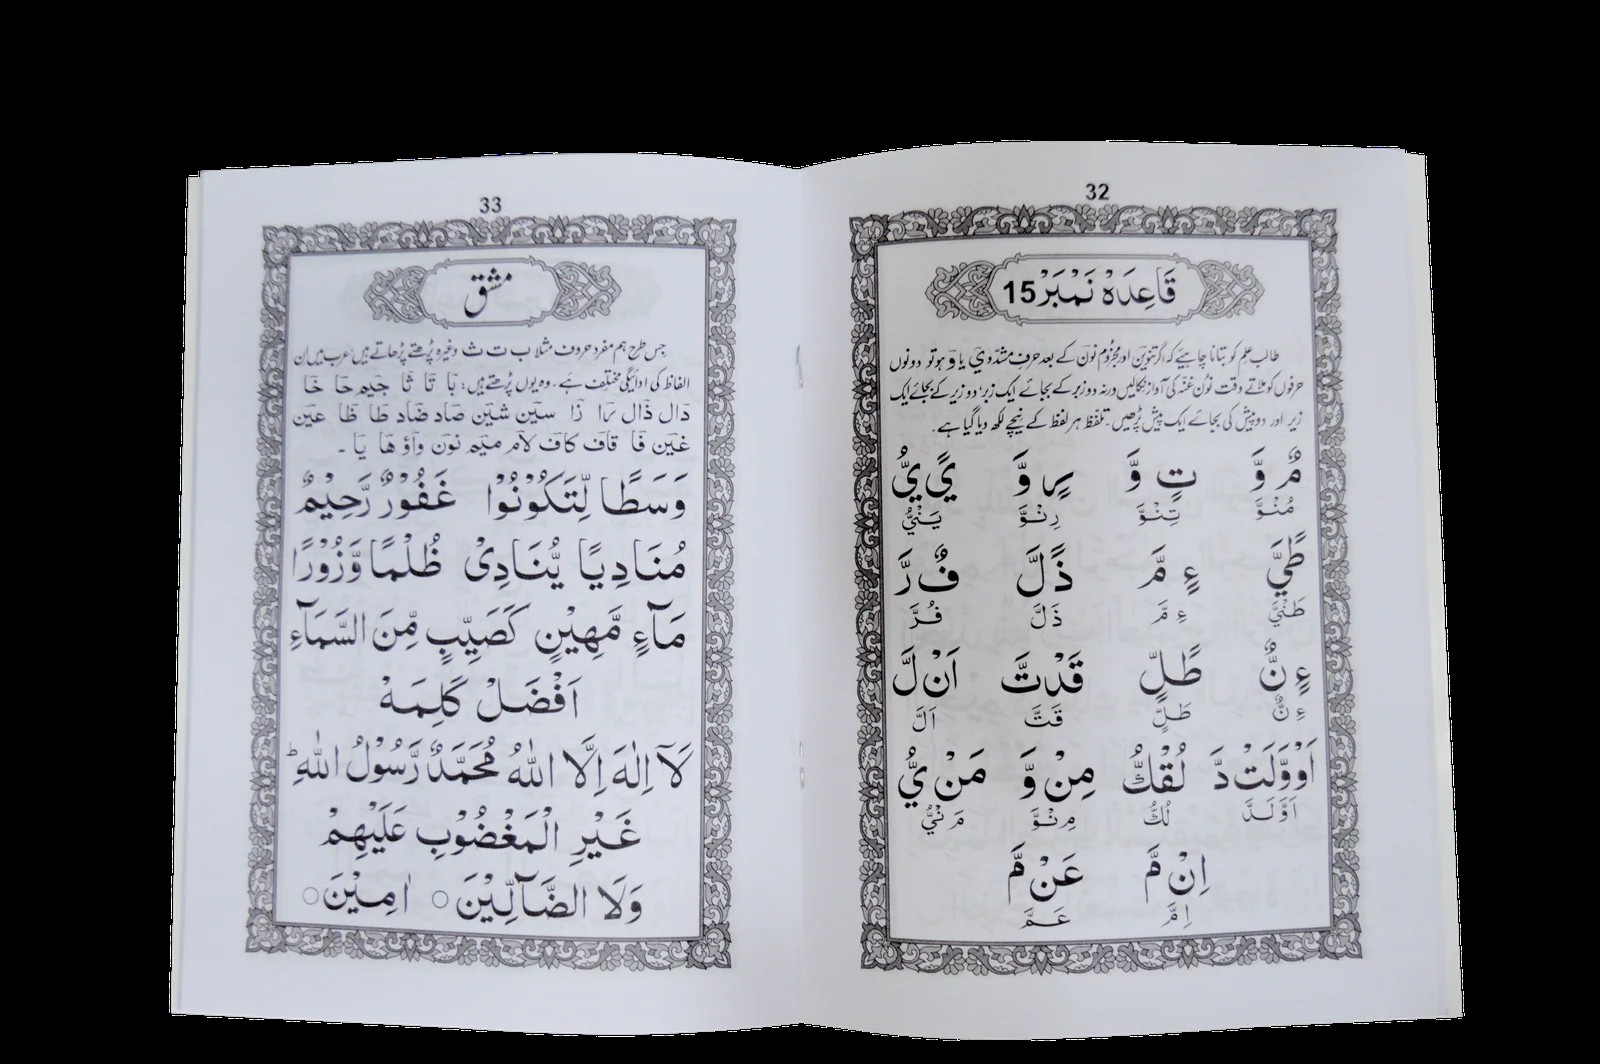 32
قَاعِدَہْ نَمْبَرْ 15
طالب علم کو بتانا چاہیئے کہ اگر تنوین اور مجزوم نون کے بعد حرف مشدّد یّ یا وّ ہو تو دونوں
حرفوں کو ملاتے وقت نون غنّہ کی آواز نکالیں ورنہ دو زبر کے بجائے ایک زبر؛ دو زیر کے بجائے ایک
زیر اور دو پیش کی بجائے ایک پیش پڑھیں۔ تلفظ ہر لفظ کے نیچے لکھ دیا گیا ہے۔
مٌ وَّ تٍ وَّ رٍ وَّ يً يُّ
مُنْوَّ تِنْوَّ رِنْوَّ يَنْيُّ
طً يَّ ءٍ مَّ ذً لَّ فٌ رَّ
طَنْيَّ ءِ مَّ ذَلَّ فُرَّ
ءٍ نٌّ طً لٍّ قَدْتَّ اَنْ لَّ
ءِ نٌّ طَلٍّ قَتَّ اَلَّ
اَوْوَّلَتْ دَّ لُقْكُّ مِنْ وَّ مَنْ يُّ
اَوَّلَدَّ لُكُّ مِنْوَّ مَنْيُّ
اِنْ مَّ عَنْ مَّ
اِمَّ عَمَّ
33
مشق
جس طرح ہم مفرد حروف مثلا ب ت ث وغیرہ پڑھتے پڑھاتے ہیں عرب میں ان
الفاظ کی ادائیگی مختلف ہے۔ وہ یوں پڑھتے ہیں: بَا تَا ثَا جِيم حَا خَا
دَال ذَال رَا زَا سِين شِين صَاد ضَاد طَا ظَا عَين
غَين فَا قَاف كَاف لَام مِيم نُون وَاؤ هَا يَا ۔
وَسَطًا لِّتَكُوْنُوْا غَفُوْرٌ رَّحِيْمٌ
مُنَادِيًا يُّنَادِىْ ظُلْمًا وَّزُوْرًا
مَآءٍ مَّهِيْنٍ كَصَيِّبٍ مِّنَ السَّمَآءِ
اَفْضَلْ كَلِمَهْ
لَآ اِلٰهَ اِلَّا اللّٰهُ مُحَمَّدٌ رَّسُوْلُ اللّٰهِ ؕ
غَيْرِ الْمَغْضُوْبِ عَلَيْهِمْ
وَلَا الضَّآلِّيْنَ ○ اٰمِيْنَ ○